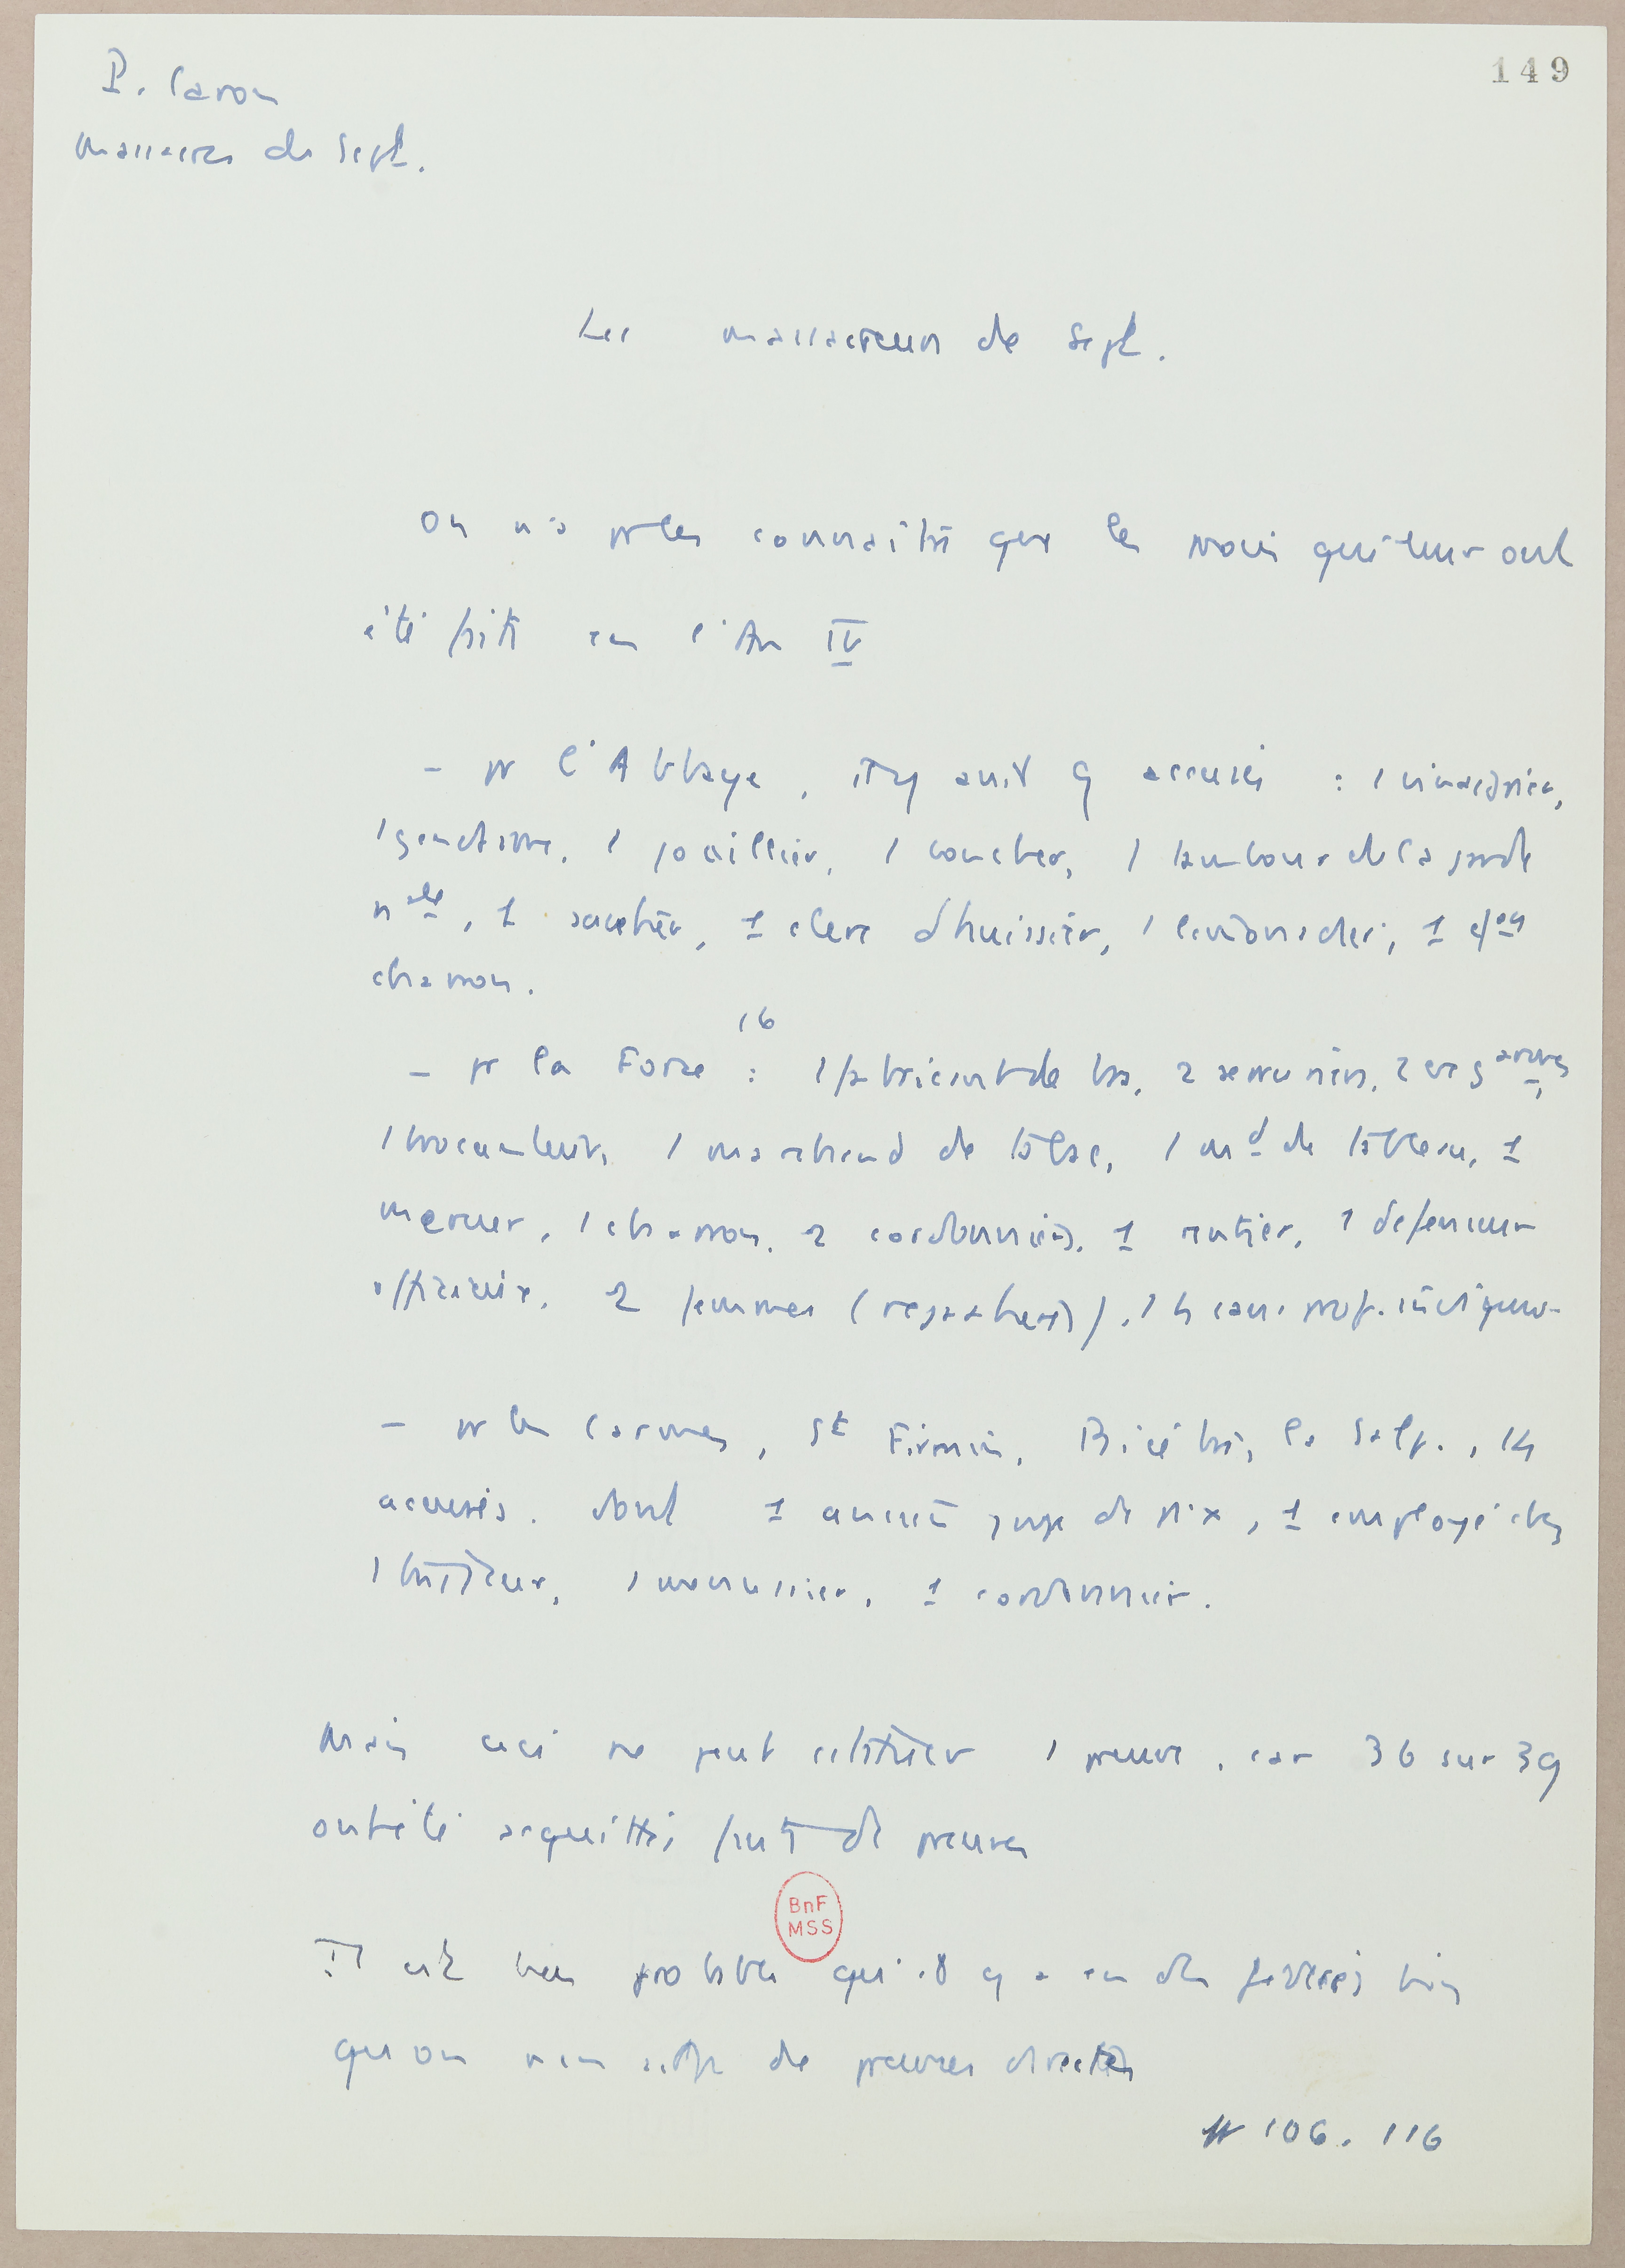 149
P. Caron
Massacres de Sept.
Les massacreurs de Sept.
On n'a pr les connaître que les procès qui leur ont
été faits en l'An IV
– pr l'Abbaye, il y avait 9 accusés : 1 vinaigrier,
1 gendarme, 1 joaillier, 1 boucher, 1 tambour de la garde
nale, 1 savetier, 1 clerc d'huissier, 1 limonadier, 1 gon
charron.
16
– pr la Force : 1 fabricant de bas, 2 serruriers, 2 ex gendarmes,
1 brocanteur, 1 marchand de tabac, 1 md de tableau, 1
mercier, 1 charron, 2 cordonniers, 1 rentier, 1 défenseur
officieux, 2 femmes, 1 h sans prof. indiquée
– pr les Carmes, St Firmin, Bicêtre, la Salp., 14
accusés. dont 1 ancien juge de paix, 1 employé chez
1 traiteur, 1 menuissier, 1 cordonnier.
Mais ceci ne peut constituer 1 preuve, car 36 sur 39
ont été acquittés faute de preuves
Il est bien probable qu'il y a eu des fédérés bien
qu'on n'en ait pas de preuves directes
106. 116
BnF
MSS